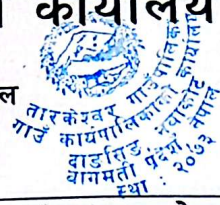 कार्यालय
ल
तारकेश्वर गाउँपालिका
गाउँ कार्यपालिकाको कार्यालय
दाङसिङ नुवाकोट
वागमती प्रदेश नेपाल
स्था : २०७३